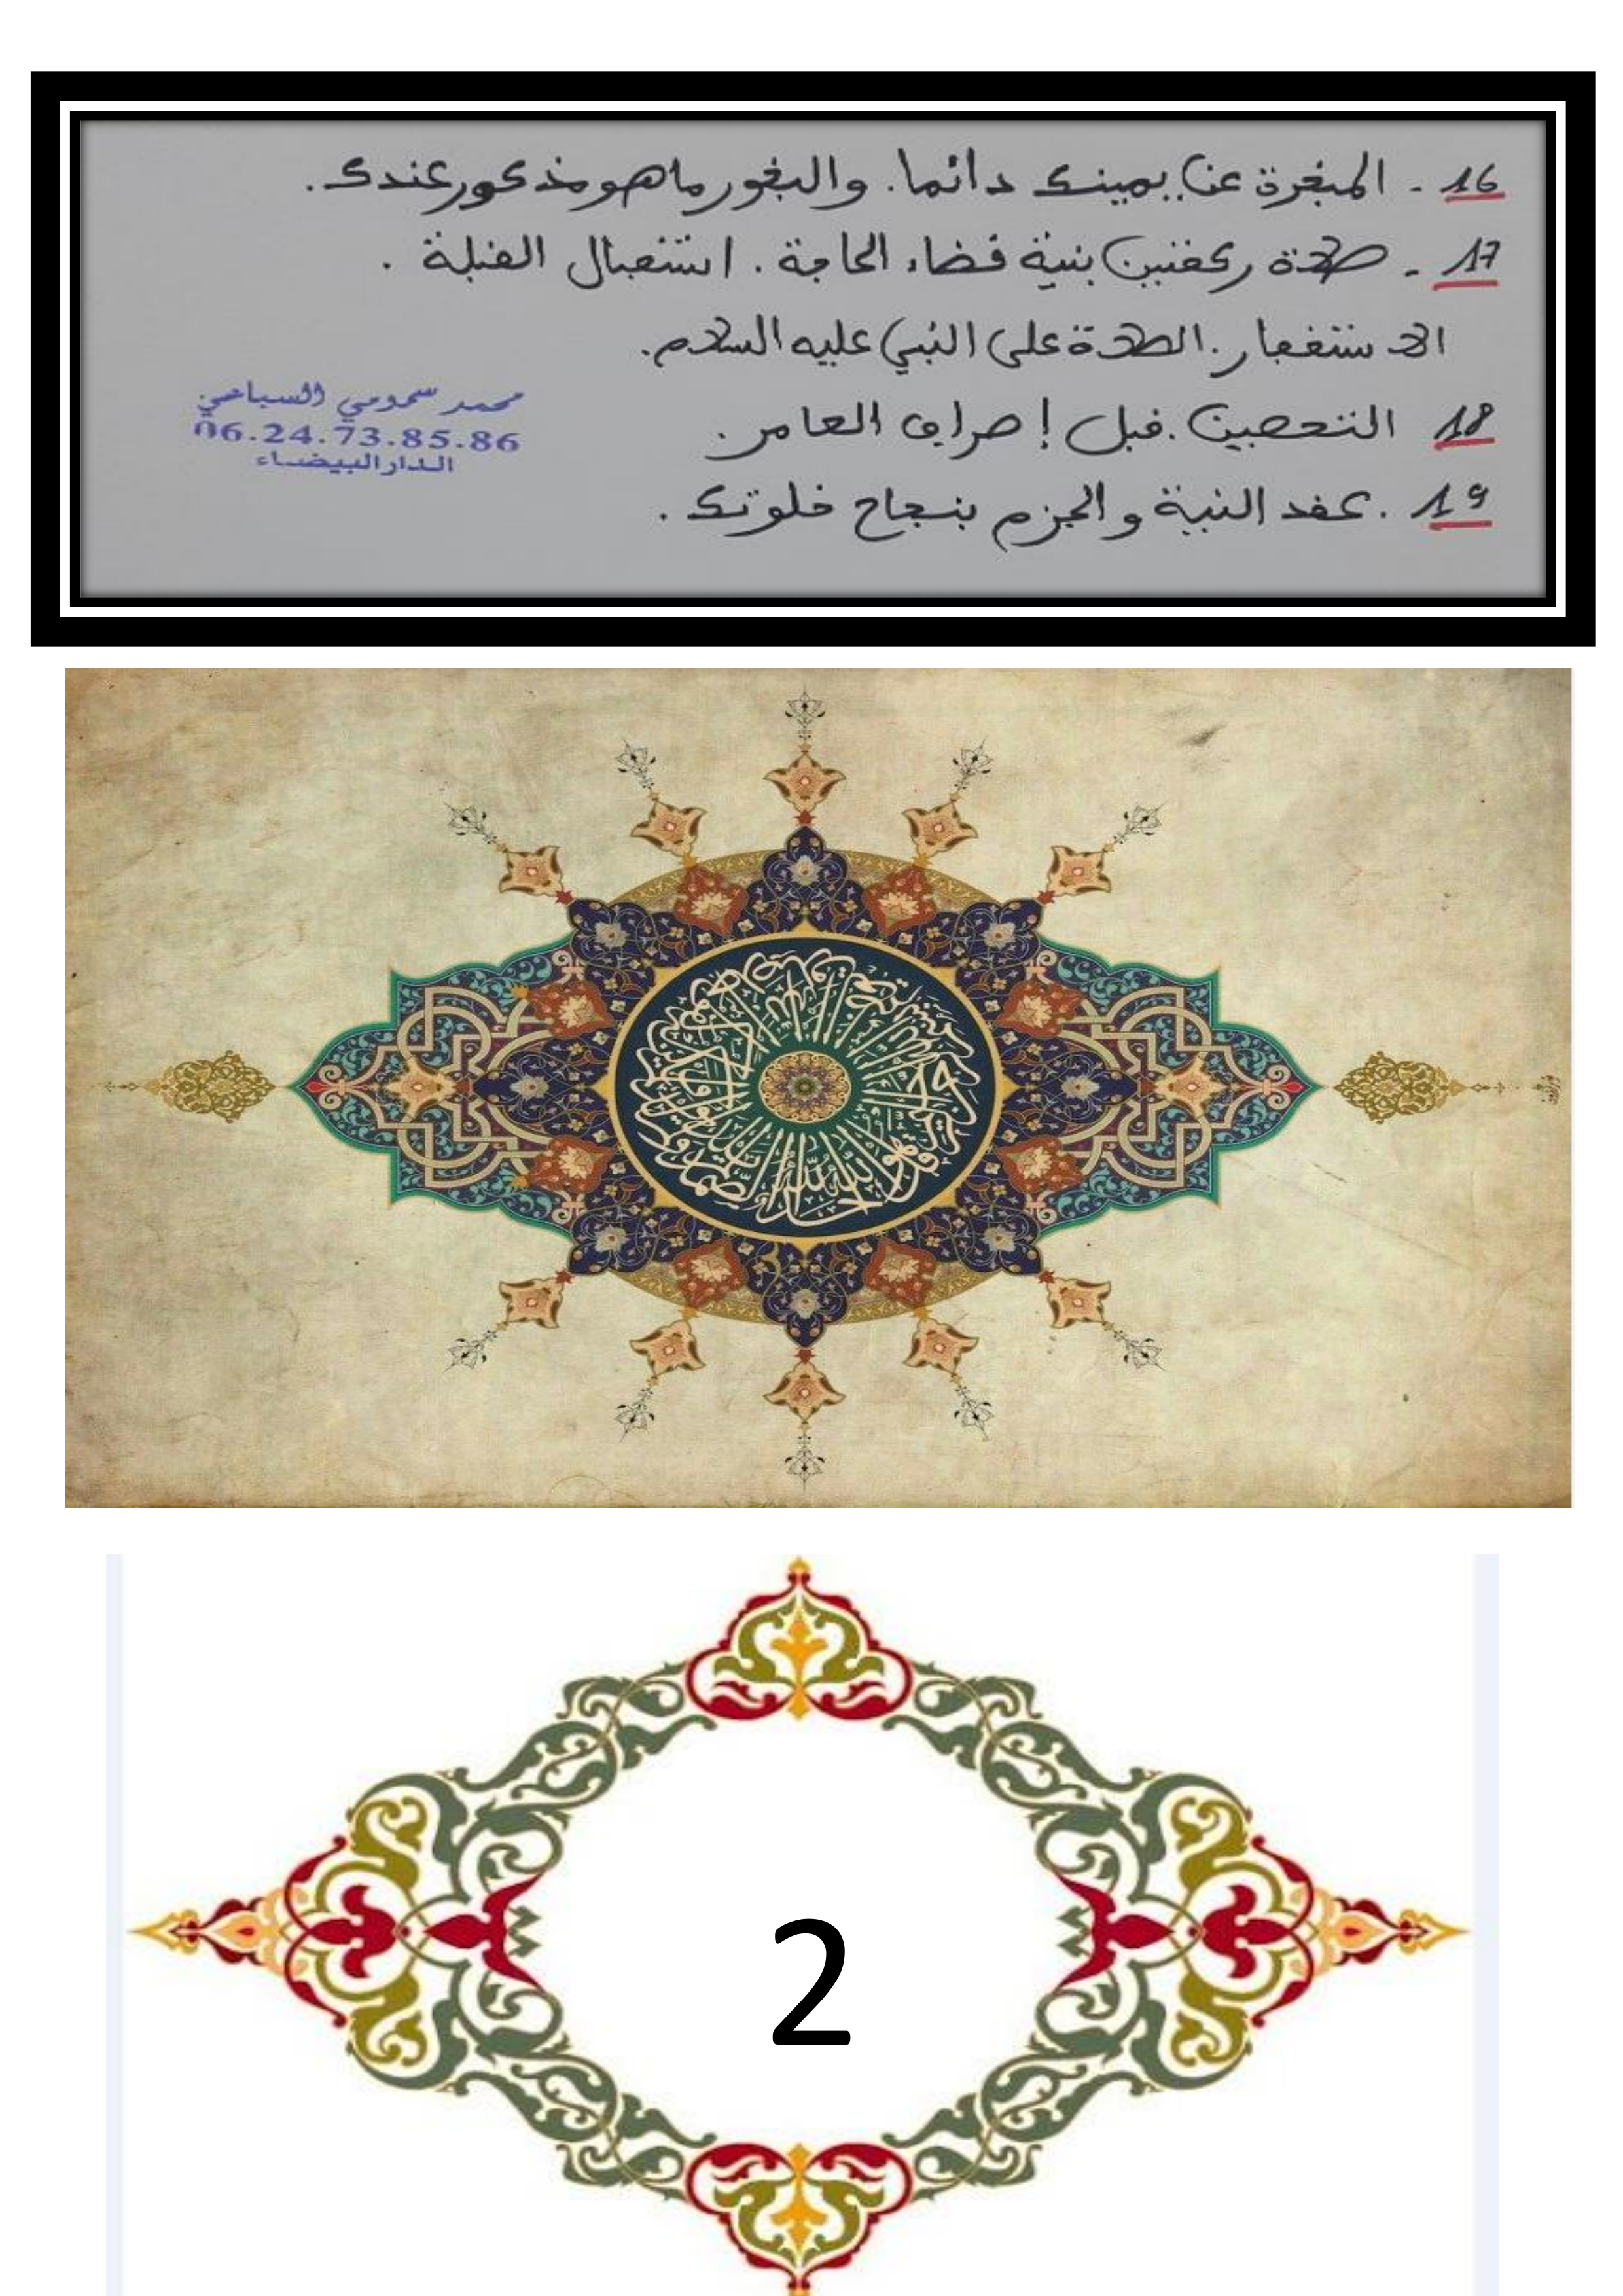 16 - المبخرة عن يمينك دائما. والبخور ما هو مذكور عندك.
17 - صلاة ركعتين بنية قضاء الحاجة. استقبال القبلة.
الاستغفار. الصلاة على النبي عليه السلام.
18 التحصين. قبل إصراف العامر.
19. عقد النية والجزم بنجاح خلوتك.
محمد سمومي السباعي
06.24.73.85.86
الدار البيضاء
2